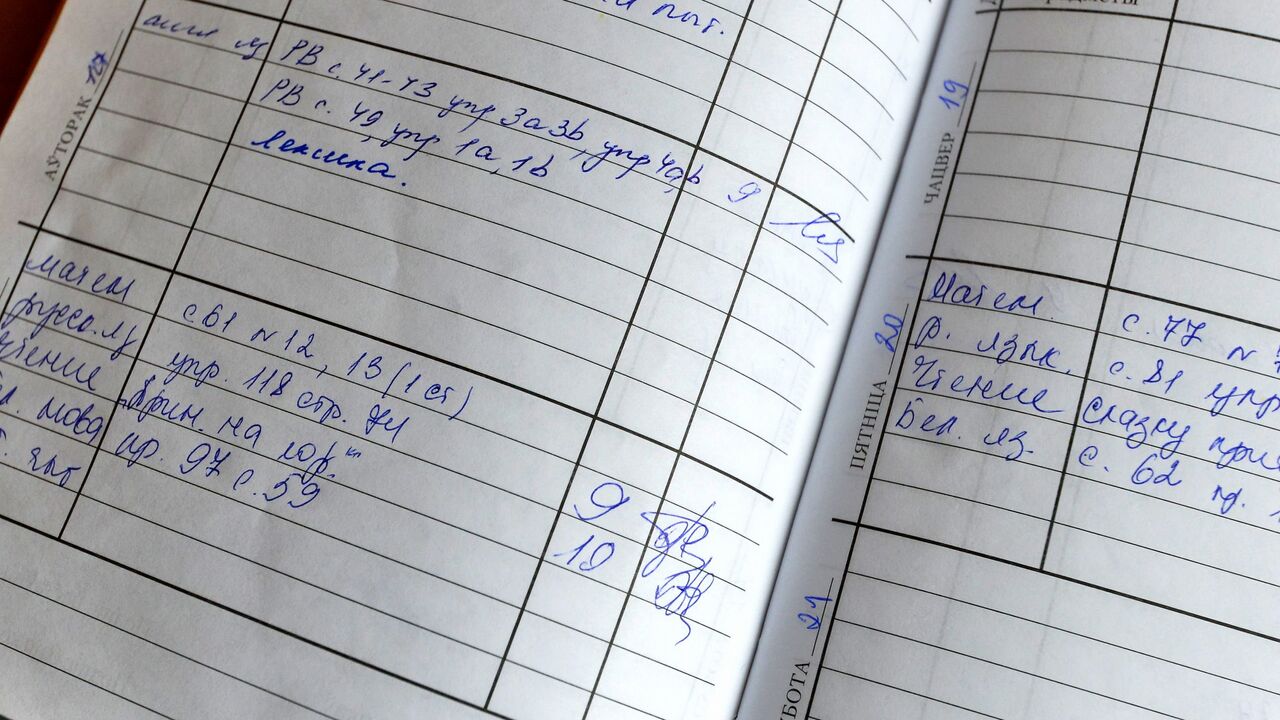 АУТОРАК 17
англ яз
PB с. 41-43 упр 3a3b, упр 4a,b 9
PB с. 49, упр 1a, 1b
Лексика.
матем с.61 N 12, 13 (1 ст)
русс. яз упр. 118 стр. 71
чтение
мова пр. 97 с. 59
9
10
ЧАЦВЕР 19
ПЯТНІЦА 20
Матем. с. 77 N
р. язык. с. 81 упр
Чтение сказку
Бел. яз. с. 62
21